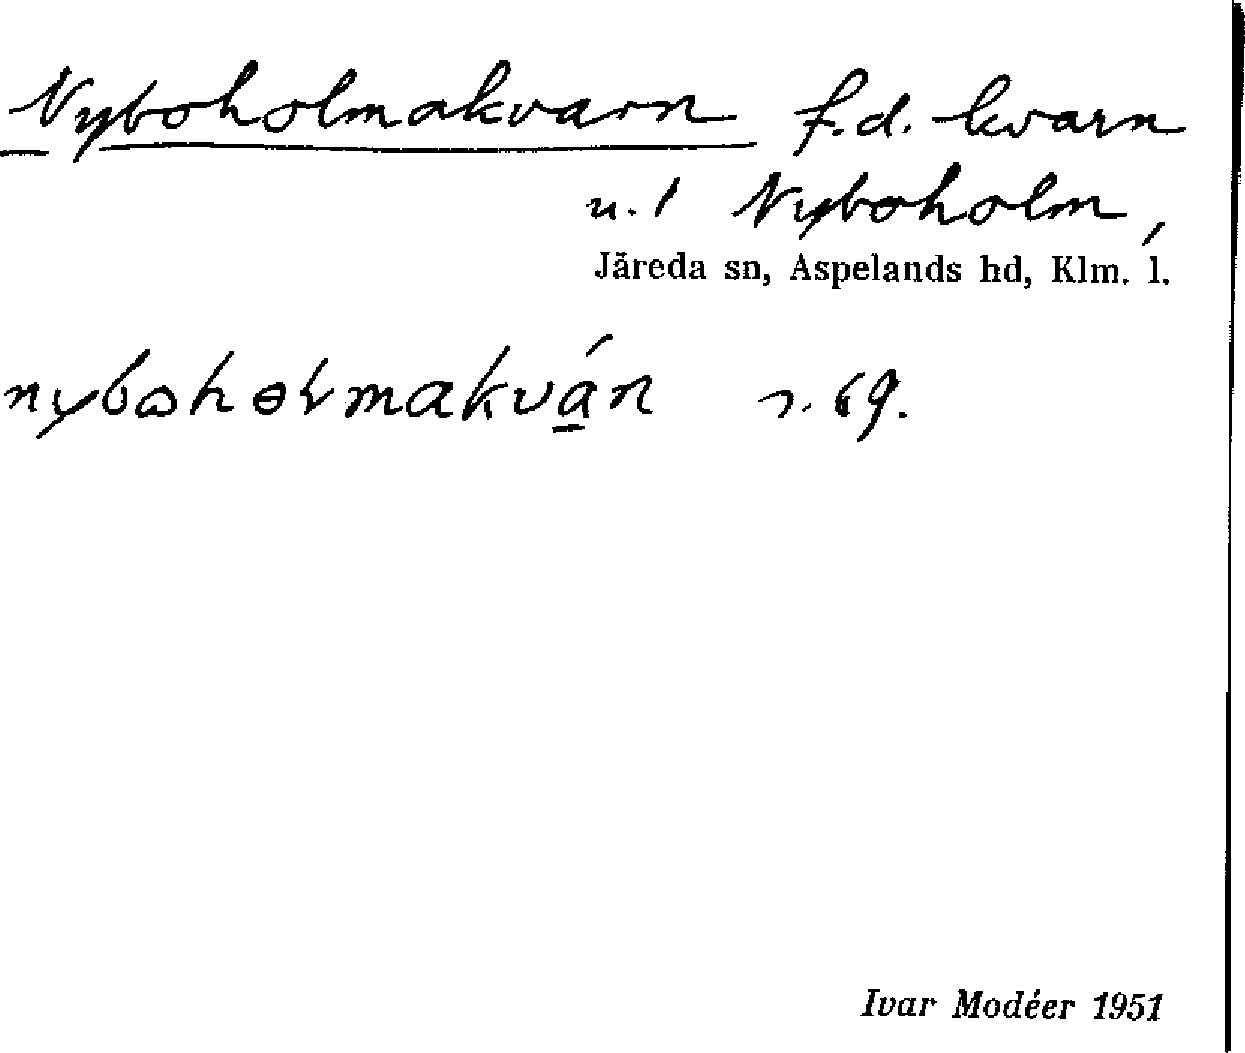 Nyboholmakvarn f.d. kvarn
u. 1 Nyboholm,
Järeda sn, Aspelands hd, Klm. l.
nyboholmakván s. 69.
Ivar Modéer 1951